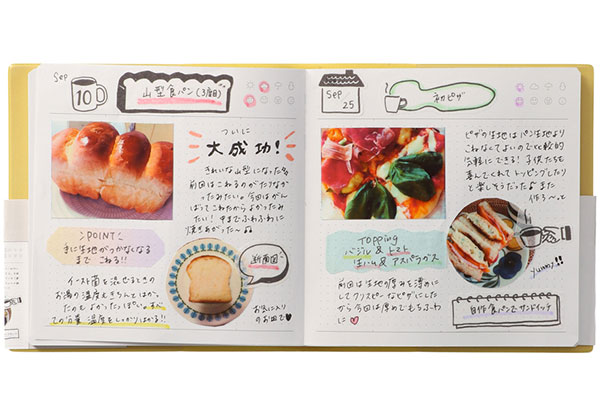 Sep
10
山型食パン(3回目)
ついに
大成功!
きれいな山型になった
前回はこねるのがたりなか
ったみたい。今回はがん
ばってこねたからよかったみ
たい! 中までふわふわに
焼きあがった〜♫
POINT
手に生地がつかなくなる
まで こねる!!
イースト菌を混ぜるときの
お湯の温度もきちんとはかっ
たのもよかったっぽい。
ての分量、温度をしっかりはかる!!
断面図
お気に入り
のお皿で♥
Sep
25
初ピザ
ピザの生地はパン生地より
こねなくてよいので比較的
気軽にできる! 子供たちも
喜んでくれてトッピングしたり
と楽しそうだった♫ また
作ろ〜っと
TOPPing
バジル & トマト
生ハム & アスパラガス
前回は生地の厚みを薄めに
してクリスピーなピザにした
から今回は厚めでもちふわ
に♥
Yummy!!
自作食パンでサンドイッチ